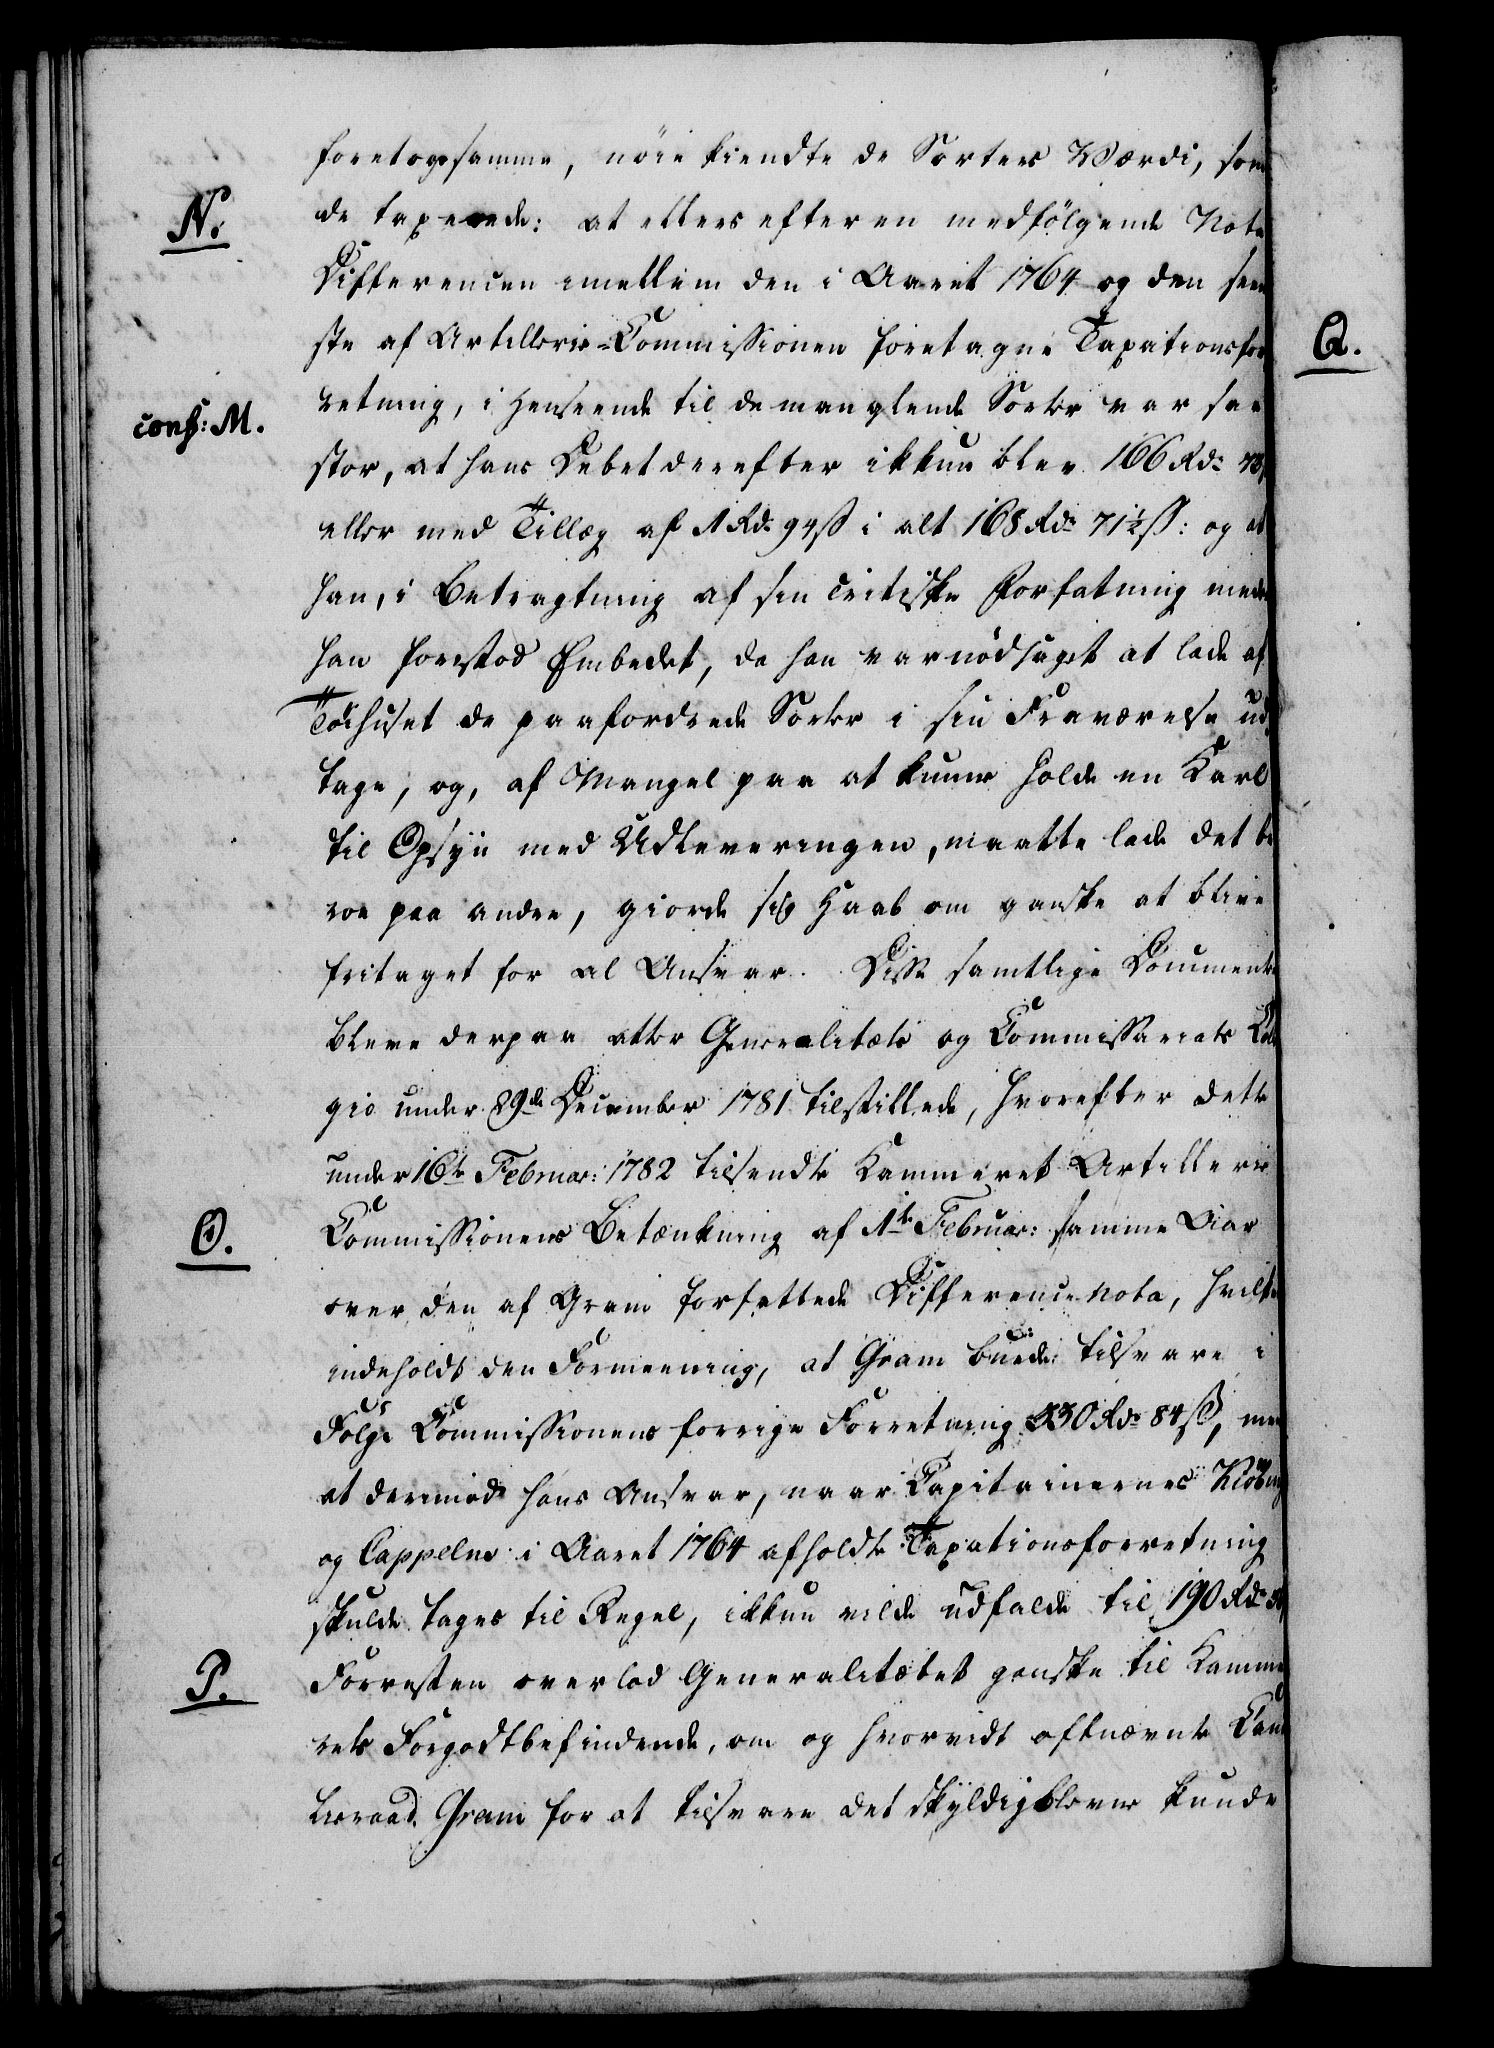 foretoge samme, nöie kiendte de Sorters Værdi, som
N.
de taxerede: at ellers efter en medfölgende Nota
Differencen imellem den i Aaret 1764 og den seene
ste af Artillerie-Commissionen foretagne Taxationsfor
Q.
retning, i Henseende til de manglende Sorter var saa
conf: M.
stor, at hans Debet derefter ikkun blev 166 Rd:
eller med Tillæg af 1 Rd. 94 ß i alt 168 Rd: 71½ ß: og at
han, i Betragtning af sin critiske Forfatning meden
han forestod Embedet, da han var nödsaget at lade af
Töihuset de paafordrede Sorter i sin Fraværelse ud
tage, og, af Mangel paa at kunne holde en Karl
til Opsyn med Udleveringen, maatte lade det be
roe paa andre, giorde sig Haab om ganske at blive
fritaget for al Ansvar. Disse samtlige Documenter
bleve derpaa atter Generalitets og Commissariats Colle
gio under 29de December 1781 tilstillede, hvorefter dette
under 16de Februar: 1782 tilsendte Kammeret Artillerie
O.
Commissionens Betænkning af 1te Februar: samme Aar
over den af Gram forfattede Difference Nota, hvilken
indeholdt den Formeening, at Gram burde tilsvare i
Fölge Commissionens forrige Forretning 330 Rd: 84 ß, men
at derimod hans Ansvar, naar Capitainernes Kiöbing
og Cappelns i Aaret 1764 afholdte Taxationsforretning
skulde tages til Regel, ikkun vilde udfalde til 190 Rd:
P.
Forresten overlod Generalitetet ganske til Kamme
rets Forgodtbefindende, om og hvorvidt oftnævnte Can
lieraad Gram for at tilsvare det skyldigblevne kunde